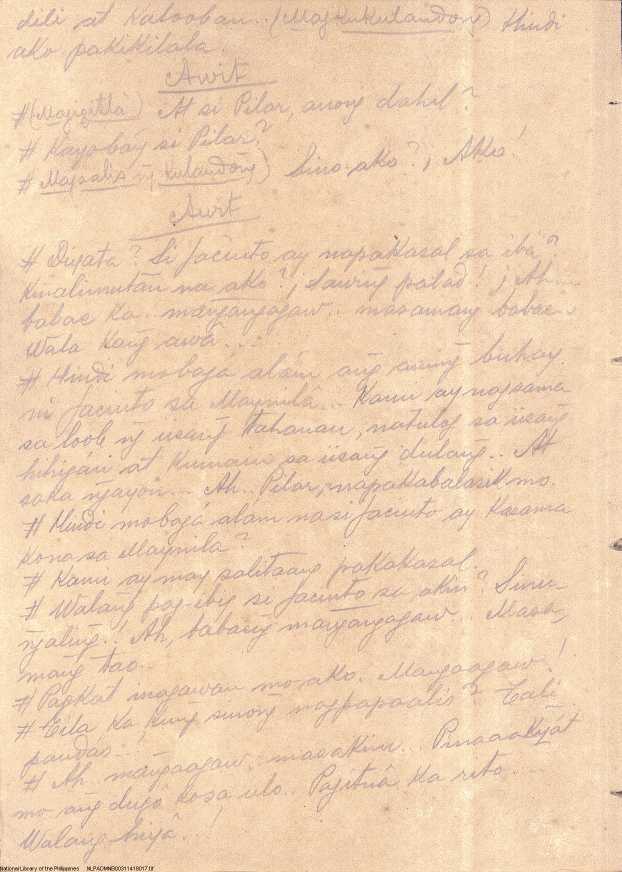 dili at Kalooban... (Magkukulandong) Hindi
ako pakikilala.
Awit
# (Magigitlâ) At si Pilar, anong dahil?
# Kayobáy si Pilar?
# Magsalis ng Kulandong) Sino ako?; Ako!
Awit
# Diyata? Si Jacinto ay napakasal sa ibá?
Kinalimutan na ako?; Sawing palad! ; Ah
babae ka.. mangangagaw.. masamang babae..
Wala Kang awâ....
# Hindi mobagá alám ang aming buhay
ni Jacinto sa Maynilâ... Kami ay nagsama
sa loob ng isang tahanan, natulog sa iisang
hihigán at kumain sa iisang dulang.. At
saka ngayon... Ah.. Pilar, napakabalasik mo.
# Hindi mobagá alam na si Jacinto ay Kasama
Kona sa Maynila?
# Kami ay may salitaang pakakasal.
# Walang pag-ibig si Jacinto sa akin? Sinu-
ngaling! Ah, babaing mangangagaw... Masa-
mang tao..
# Pagkat inagawan mo ako. Mangaagaw!
# Cila ka kung sinong nagpapaalis? Tali
pandas...
# Ah, mangaagaw.. masakim... Pinaaakyát
mo ang dugô ko sa ulo.. Pagitnâ Ka rito....
Walang hiyâ...!
National Library of the Philippines NLPADMNB00311418017.tif